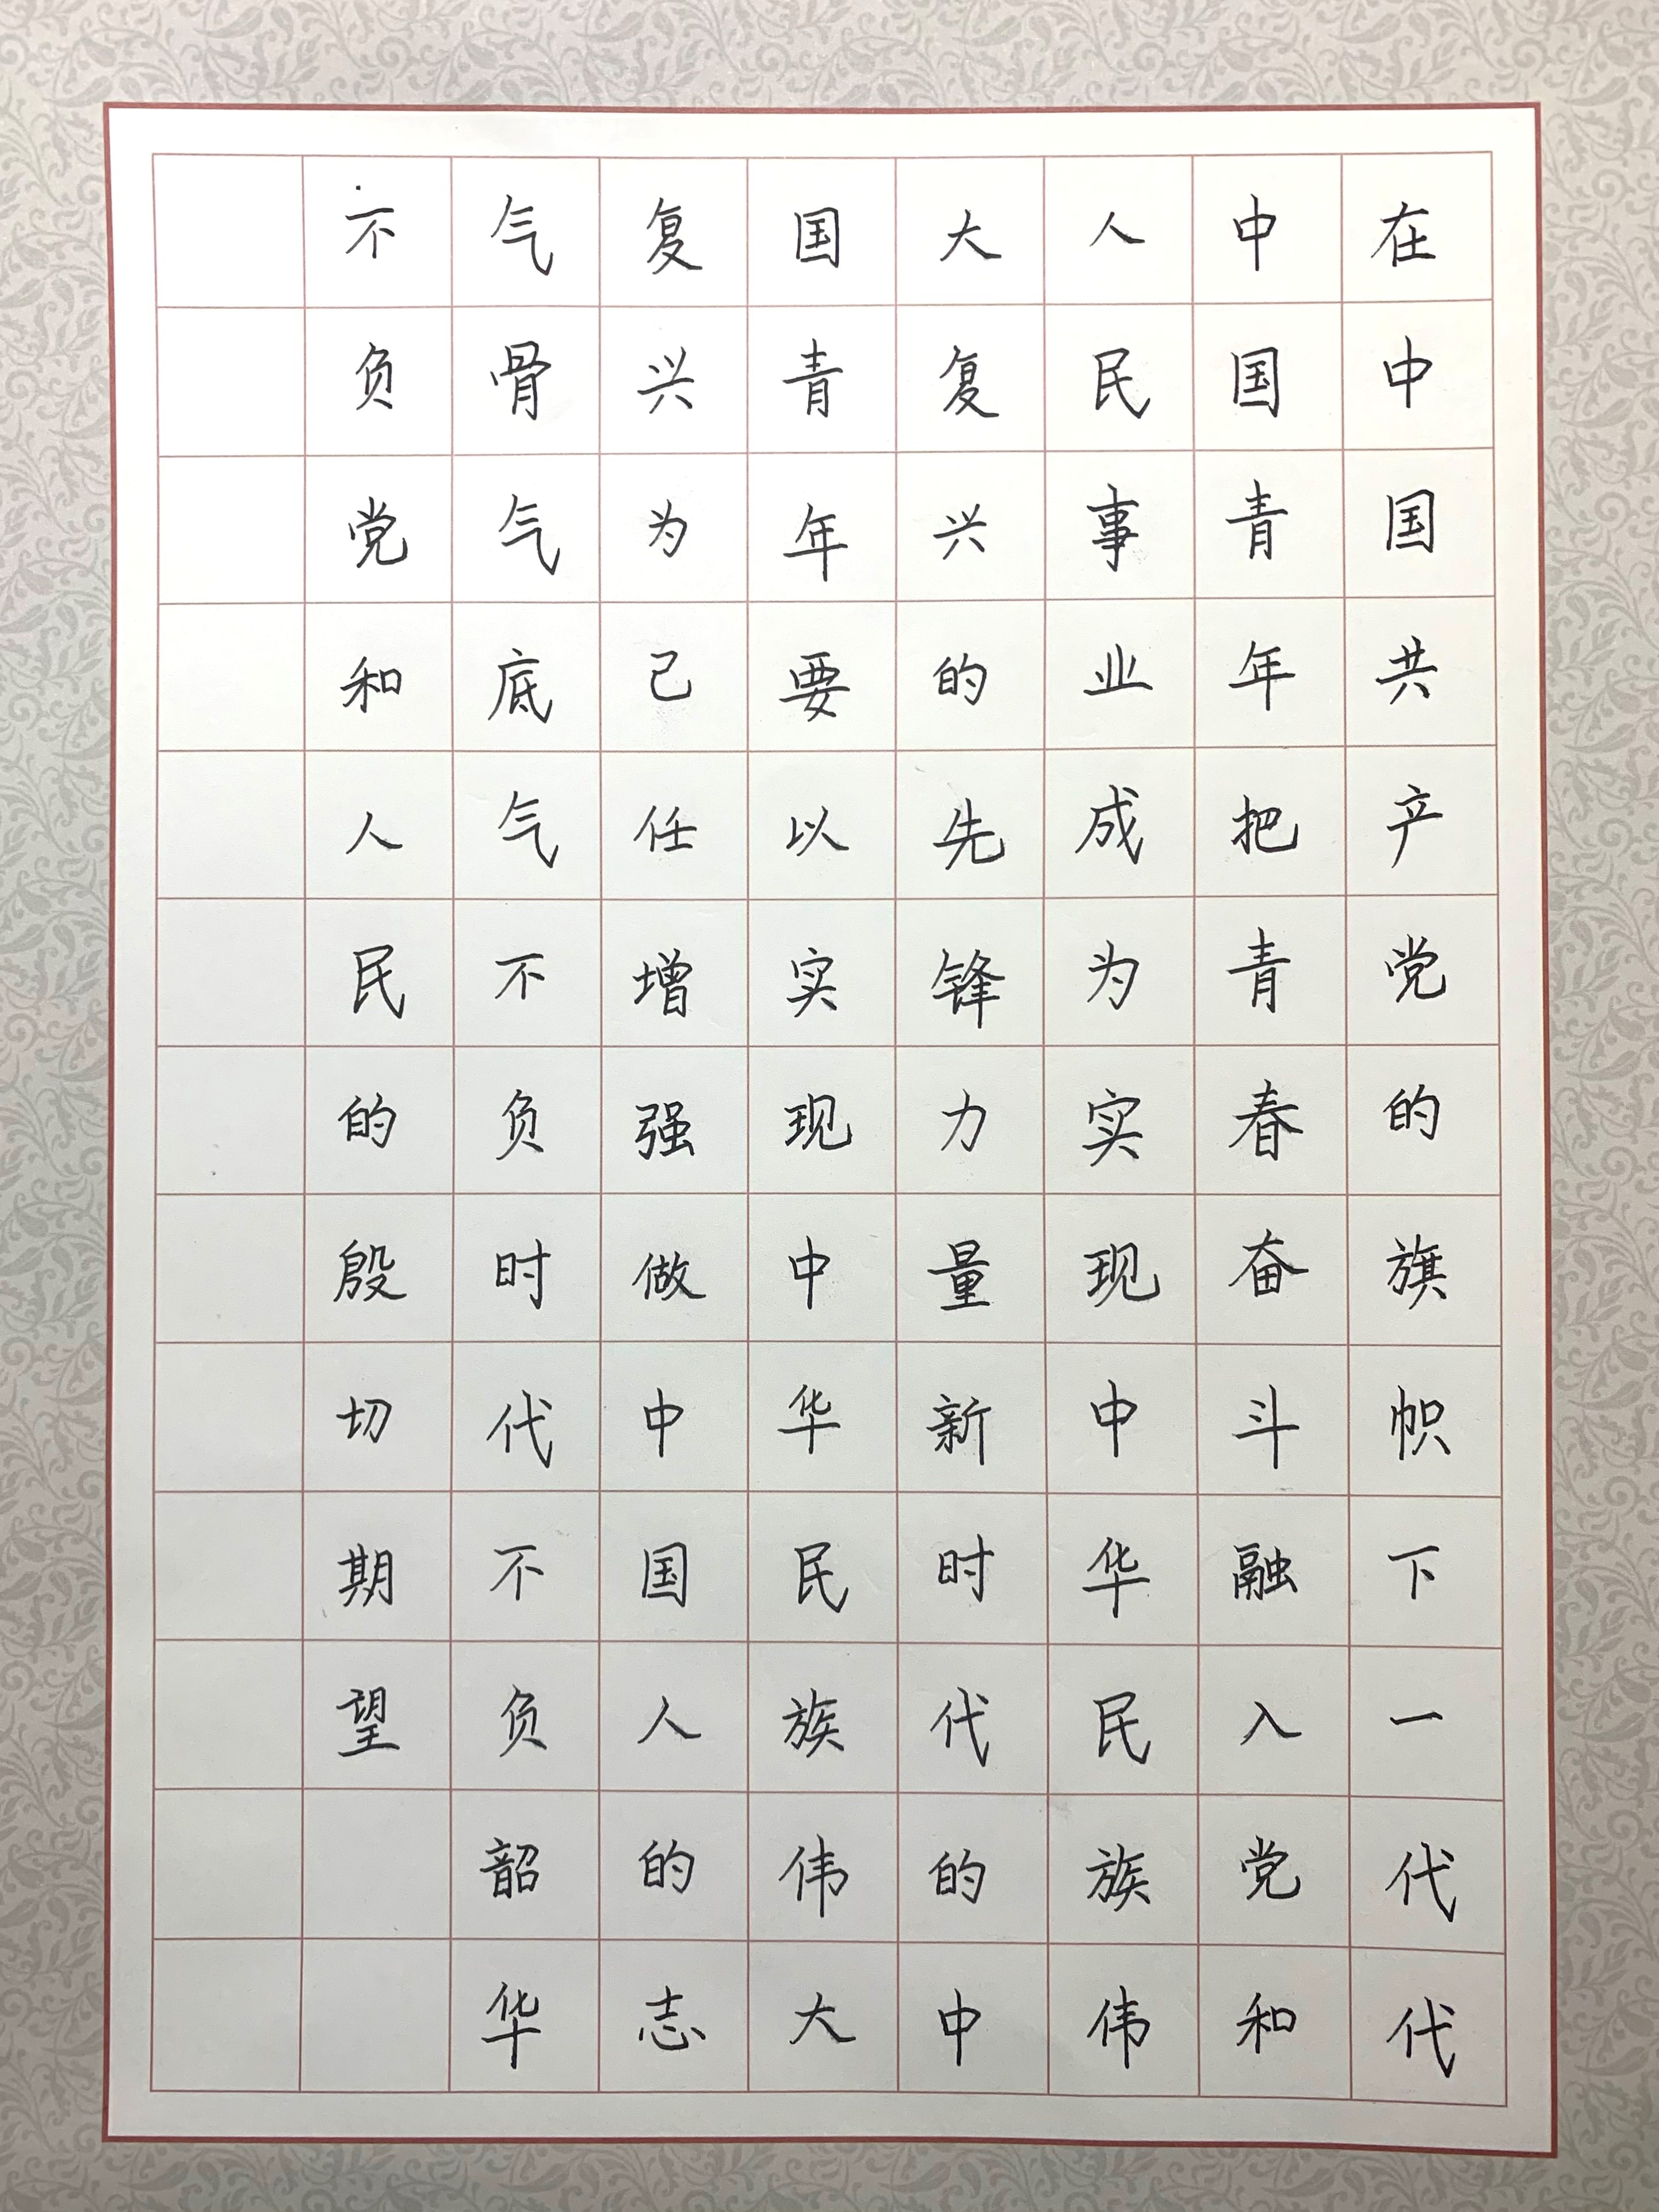 在中国共产党的旗帜下一代代
中国青年把青春奋斗融入党和
人民事业成为实现中华民族伟
大复兴的先锋力量新时代的中
国青年要以实现中华民族伟大
复兴为己任增强做中国人的志
气骨气底气不负时代不负韶华
不负党和人民的殷切期望